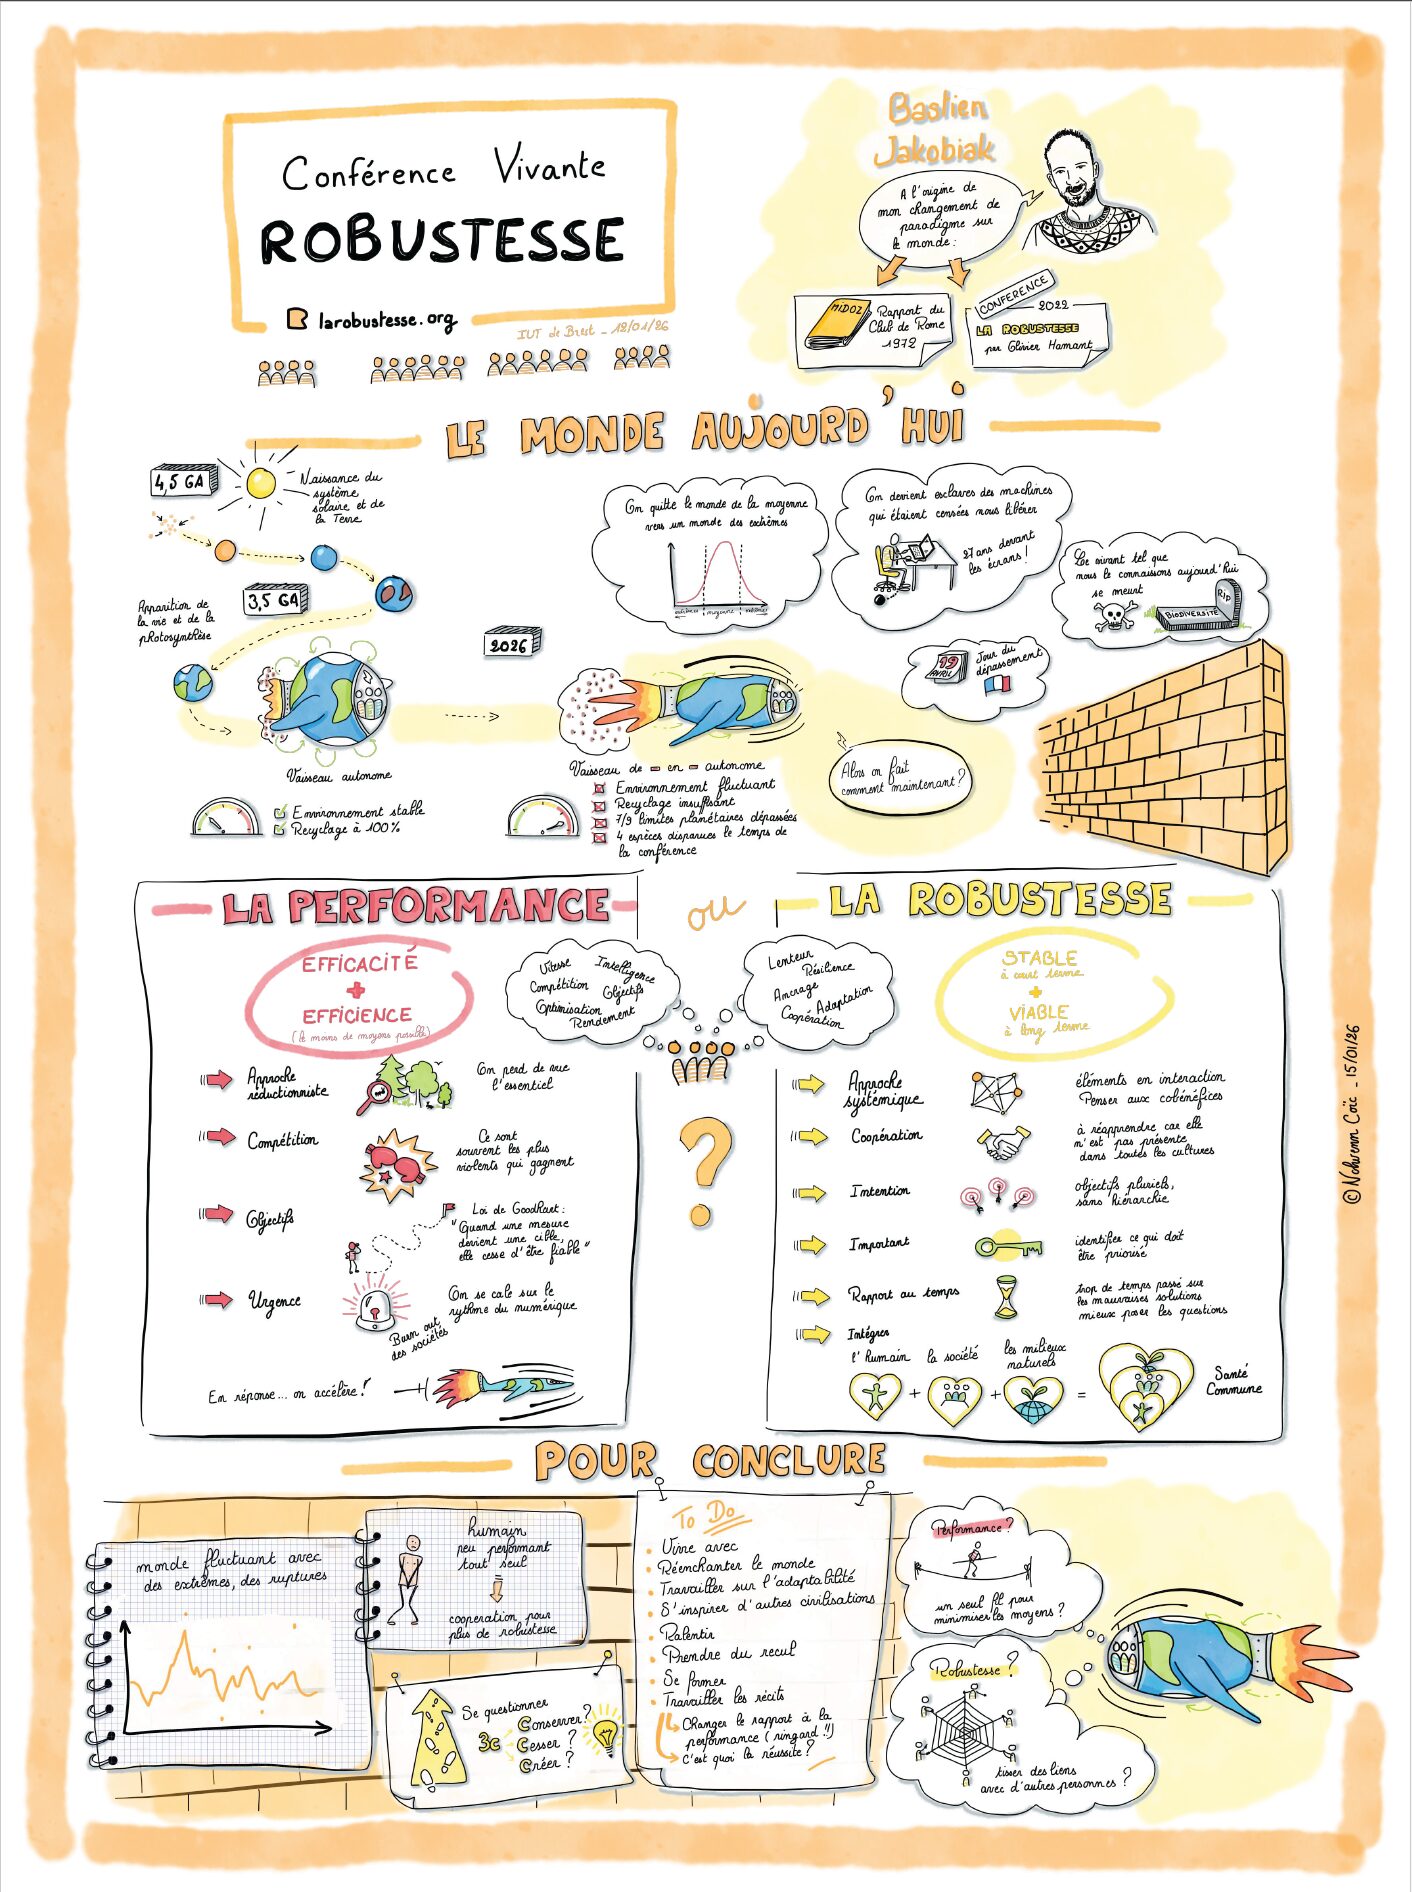 Conférence Vivante
ROBUSTESSE
larobustesse.org
IUT de Brest - 12/01/26
Bastien
Jakobiak
A l'origine de
mon changement de
paradigme sur
le monde :
MiDOZ
Rapport du
Club de Rome
1972
CONFERENCE
2022
LA ROBUSTESSE
par Olivier Hamant
LE MONDE AUJOURD'HUI
4,5 GA
Naissance du
système
solaire et de
la Terre
3,5 GA
Apparition de
la vie et de la
photosynthèse
2026
On quitte le monde de la moyenne
vers un monde des extrêmes
extrêmes moyenne extrêmes
On devient esclaves des machines
qui étaient censées nous libérer
27 ans devant
les écrans !
Le vivant tel que
nous le connaissons aujourd'hui
se meurt
RIP
BIODIVERSITÉ
19
AVRIL
Jour du
dépassement
Vaisseau autonome
Environnement stable
Recyclage à 100%
Vaisseau de - en - autonome
Environnement fluctuant
Recyclage insuffisant
7/9 limites planétaires dépassées
4 espèces disparues le temps de
la conférence
Alors on fait
comment maintenant ?
LA PERFORMANCE
ou
LA ROBUSTESSE
EFFICACITÉ
+
EFFICIENCE
(le moins de moyens possible)
Vitesse
Intelligence
Compétition
Objectifs
Optimisation
Rendement
Lenteur
Résilience
Ancrage
Adaptation
Coopération
STABLE
à court terme
+
VIABLE
à long terme
Approche
réductionniste
On perd de vue
l'essentiel
Compétition
Ce sont
souvent les plus
violents qui gagnent
Objectifs
Loi de Goodhaet :
"Quand une mesure
devient une cible,
elle cesse d'être fiable"
Urgence
On se cale sur le
rythme du numérique
Burn out
des sociétés
En réponse... on accélère !
?
Approche
systémique
éléments en interaction
Penser aux cobénéfices
Coopération
à réapprendre car elle
n'est pas présente
dans toutes les cultures
Intention
objectifs pluriels,
sans hiérarchie
Important
identifier ce qui doit
être priorisé
Rapport au temps
trop de temps passé sur
les mauvaises solutions
mieux poser les questions
Intégrer
l'humain
la société
les milieux
naturels
+ + =
Santé
Commune
©Nolwenn Coïc - 15/01/26
POUR CONCLURE
monde fluctuant avec
des extrêmes, des ruptures
humain
peu performant
tout seul
coopération pour
plus de robustesse
Se questionner
3C
Conserver ?
Cesser ?
Créer ?
To Do
Vivre avec
Réenchanter le monde
Travailler sur l'adaptabilité
S'inspirer d'autres civilisations
Ralentir
Prendre du recul
Se former
Travailler les récits
Changer le rapport à la
performance (ringard !!)
C'est quoi la réussite ?
Performance ?
un seul fil pour
minimiser les moyens ?
Robustesse ?
tisser des liens
avec d'autres personnes ?